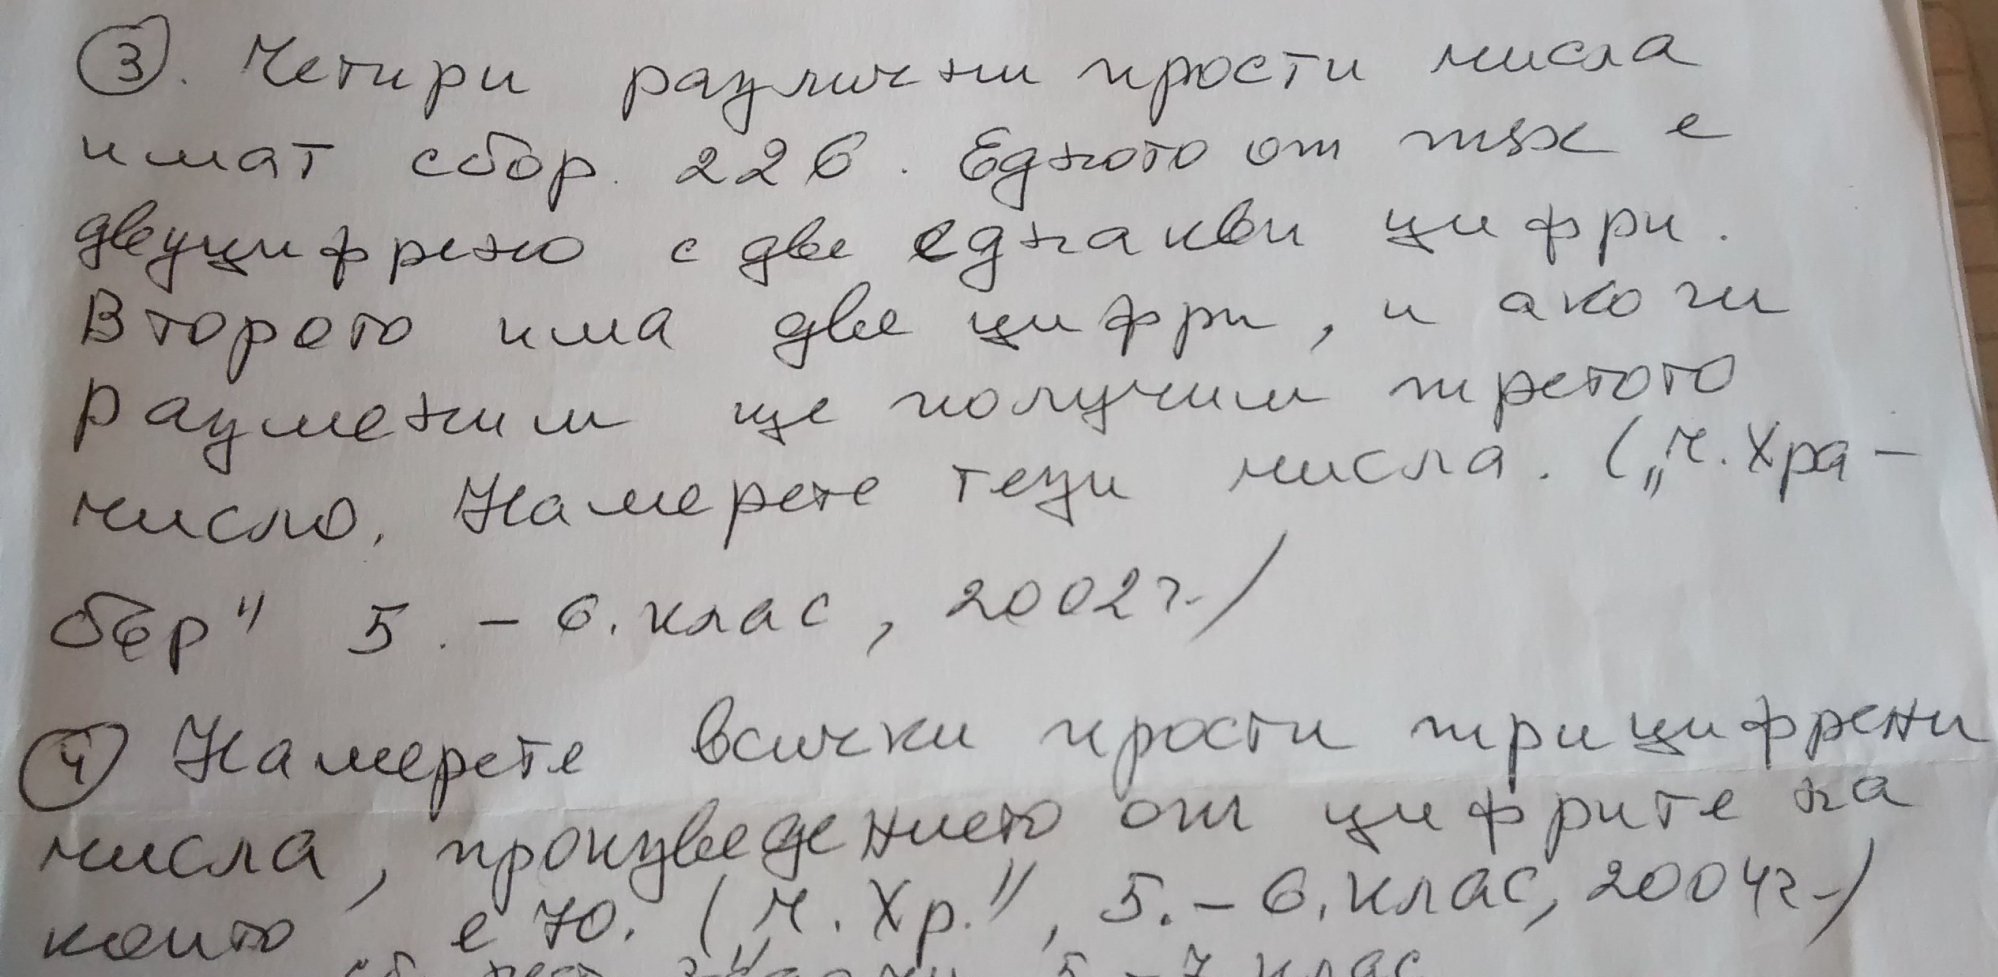 3. Четири различни прости числа
имат сбор 226. Едното от тях е
двуцифрено с две еднакви цифри.
Второто има две цифри, и ако ги
разменим ще получим третото
число. Намерете тези числа. („Ч. Хра-
бър" 5. – 6. клас, 2002 г.)
4 Намерете всички прости трицифрени
числа, произведението от цифрите на
които е 70. („Ч. Хр.", 5. – 6. клас, 2004 г.)
5 – 7 клас